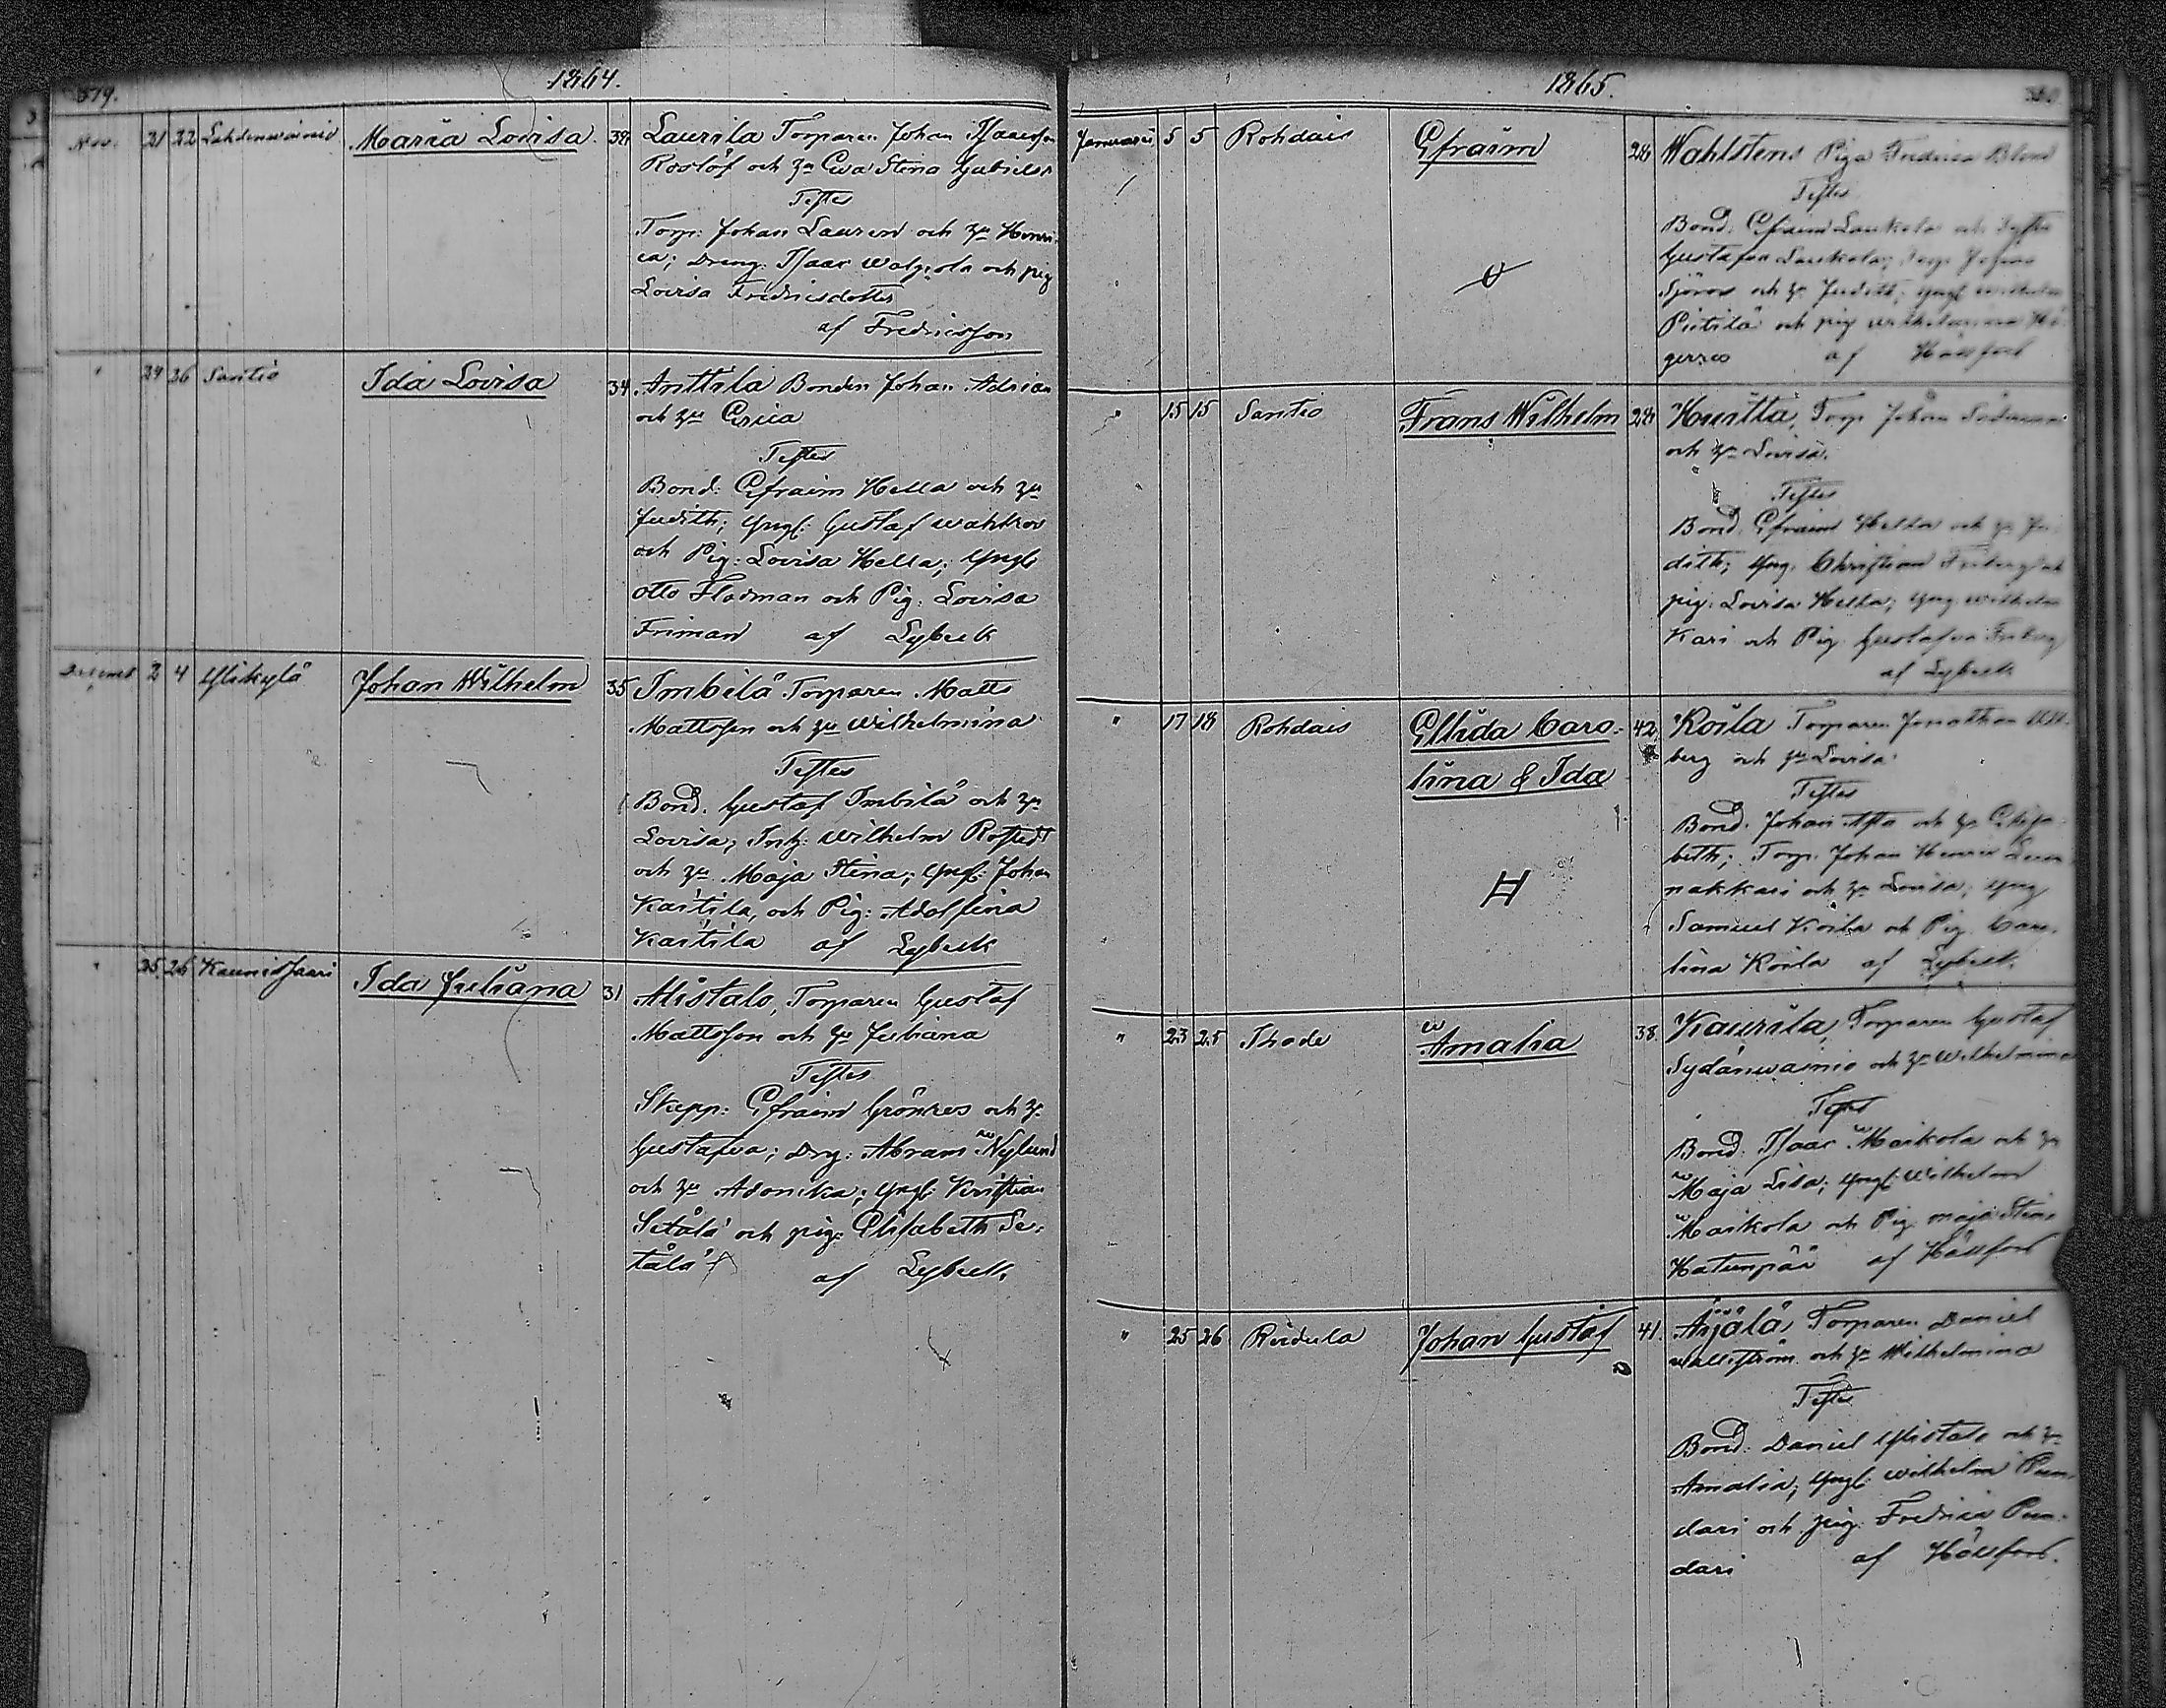 379.
1864.
Nov. 21 22 Lahdenwainio Maria Lovisa. 38 Laurila Torparen Johan Isaacsson
Roslöf och h:u Eva Stina Gabrielsd:r
Testes
Torp: Johan Lauren och h:u Henri-
ca; Dreng: Isaac Walpola och pig
Lovisa Fredricsdotter
af Fredricsson
" 24 26 Santio Ida Lovisa 34 Anttila Bonden Johan Adrian
och h:u Erica
Testes
Bond: Efraim Hella och h:u
Judith; Yngl: Gustaf Wahlroos
och Pig: Lovisa Hella; Yngl:
Otto Flodman och Pig: Lovisa
Friman af Lybeck
Decemb 2 4 Ylikylä Johan Wilhelm 35 Imbilä Torparen Matts
Mattsson och h:u Wilhelmina
Testes
Bond. Gustaf Imbilä och h:u
Lovisa; Inh: Wilhelm Rostedt
och h:u Maja Stina; Yngl: Johan
Kaitila, och Pig: Adolfina
Kaitila af Lybeck
" 25 26 Kaunissaari Ida Juliana 31 Alistalo, Torparen Gustaf
Mattsson och h:u Juliana
Testes
Skepp: Efraim Grönroos och h:u
Gustafva; Drg: Abram Nylund
och h:u Adonika; Yngl: Kristian
Setälä och pig: Elisabeth Se-
tälä af Lybeck
1865.
Januarii 5 5 Rohdais Efraim 28 Wahlstens Piga Fredrica Blom
Testes
Bond. Efraim Laukola och
Gustafva Laukola; Torp Johan
Sjöroos och h:u Judith; Yngl Wilhelm
Pietilä och pig Wilhelmina Hä-
gerroos af Hällfors
" 15 15 Santio Frans Wilhelm 28 Kuitta, Torp Johan Söderman
och h:u Lovisa.
Testes
Bond. Efraim Hella och h:u Ju-
dith; Yng. Christian Friberg och
pig: Lovisa Hella; Yng. Wilhelm
Kari och Pig Gustafva Friberg
af Lybeck
" 17 18 Rohdais Ellida Caro- 42 Koila Torparen Jonathan Ull-
lina & Ida berg och h:u Lovisa
Testes
Bond. Johan och h:u Elisa-
beth; Torp. Johan Henric
nakkari och h:u Lovisa; Yng
Samuel Koila och Pig Caro-
lina Koila af Lybeck.
" 23 25 Thode Amalia 38. Kaurila, Torparen Gustaf
Sydänwainio och h:u Wilhelmina
Testes
Bond. Isaac Maikola och h:u
Maja Lisa; Yngl: Wilhelm
Maikola och Pig Maja Stina
Hatunpää af Hällfors
" 25 26 Roidula Johan Gustaf 41. Äijälä Torparen Daniel
Wallström och h:u Wilhelmina
Testes
Bond: Daniel Ylistalo och h:u
Amalia; Yngl Wilhelm Pun-
dari och pig: Fredrica Pun-
dari af Hällfors.